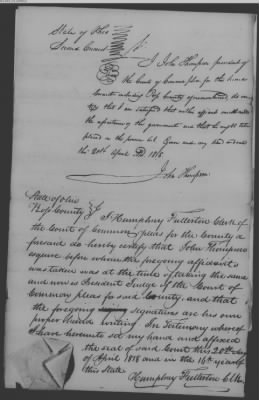 State of Ohio
Second Circuit
I John Thompson president of
the Court of Common pleas for the Second
Circuit including Ross County aforesaid, do
that I am satisfied that
the of this and that he ought to be
placed on the pension list. Given under my hand
the 20th April AD 1818
John Thompson
State of Ohio
Ross County } I Humphrey Fullerton Clerk of
the Court of Common pleas for the County a
foresaid do hereby certify that John Thompson
esquire before whom the foregoing affidavit
was taken was at the time of taking the same
and now is President Judge of the Court of
Common pleas for said County, and that
the foregoing signatures are his own
proper hand writing. In Testimony whereof
I have hereunto set my hand and affixed
the seal of said Court this 20th day
of April 1818 and in the 16th year of
this State
Humphrey Fullerton Clk